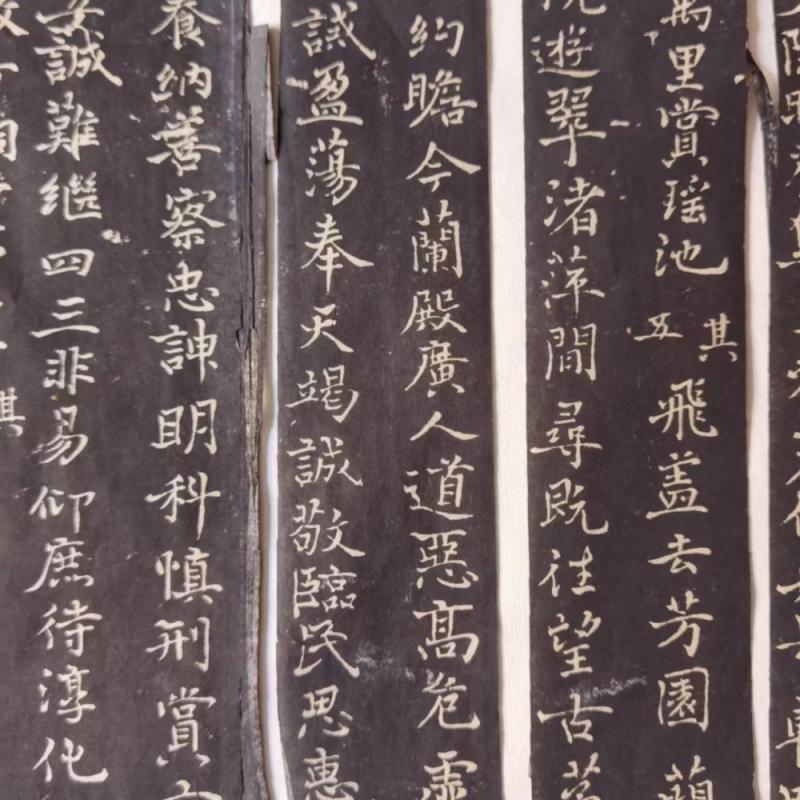 萬里賞瑤池其五飛盖去芳園
遊翠渚萍間尋既往望古
約瞻今蘭殿廣人道惡髙危虛
誡盈蕩奉天竭誠敬臨民思惠
養納善察忠訷明科慎刑賞
誠難繼四三非易仰庶待淳化